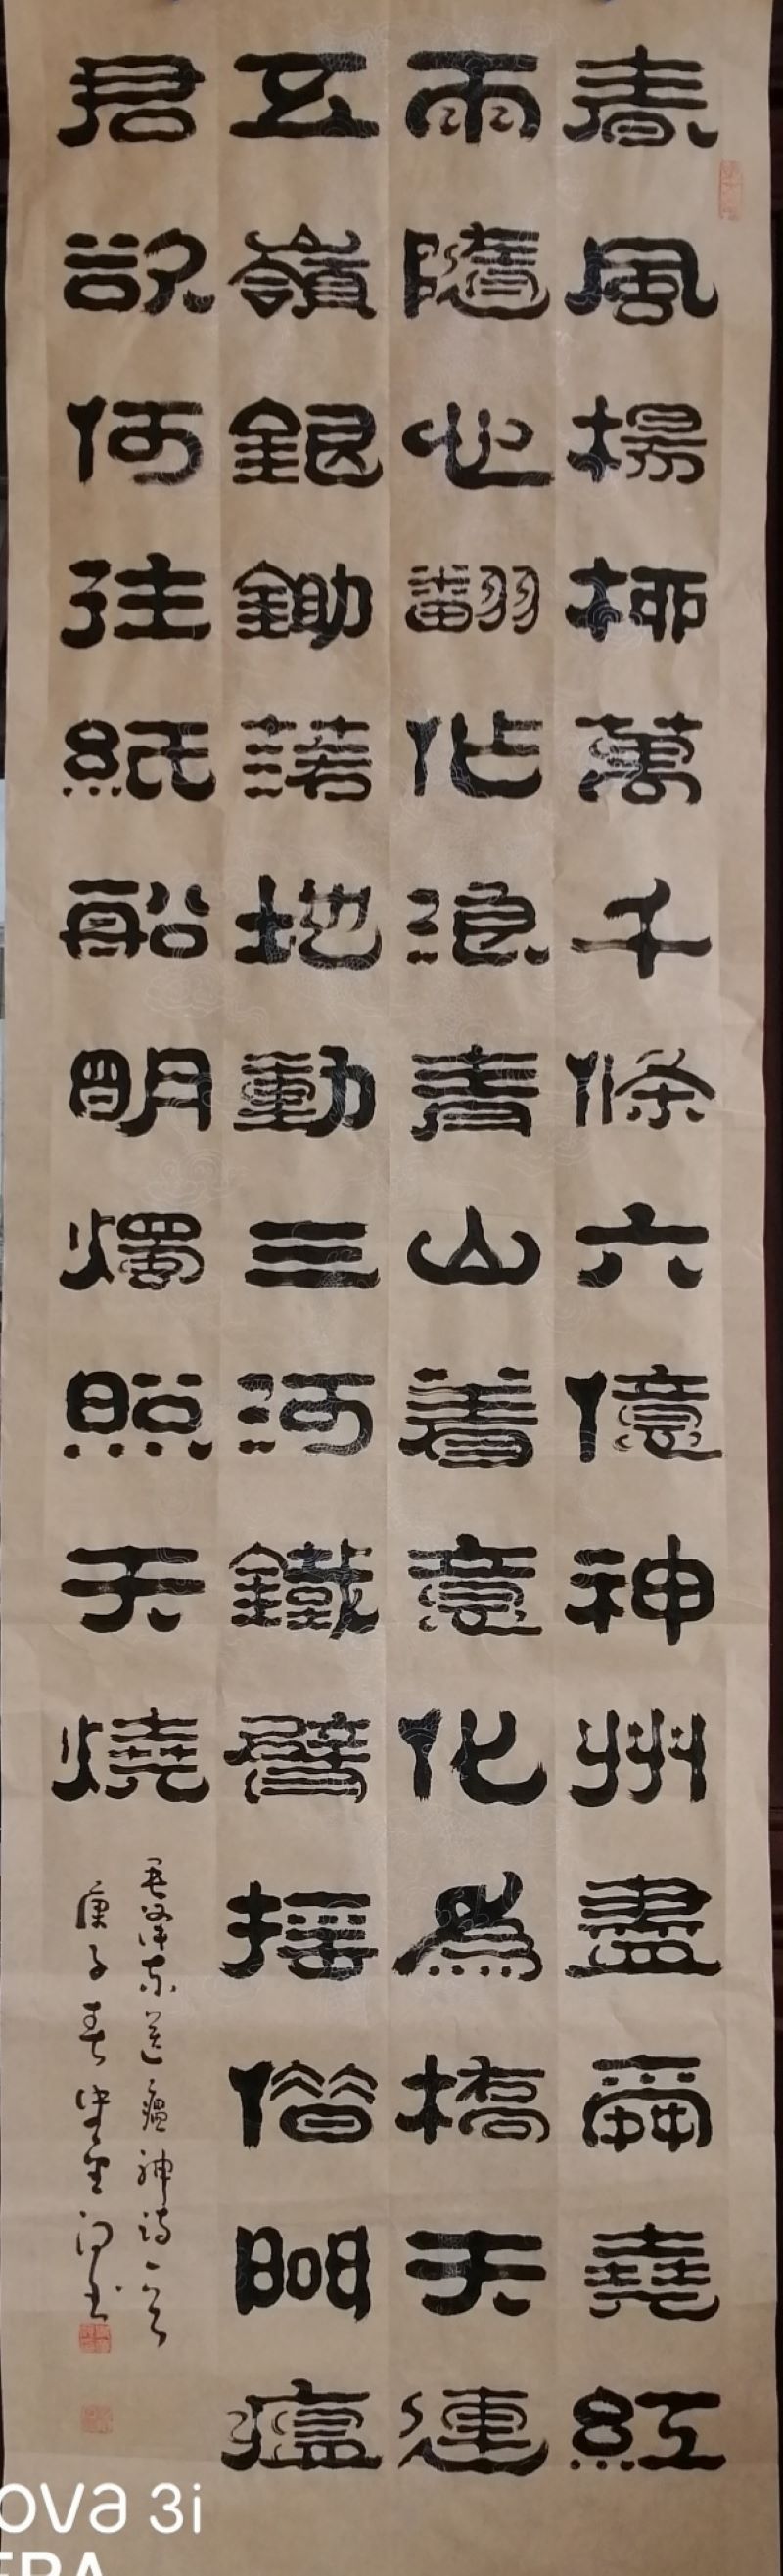 春風楊柳萬千條六億神州盡舜堯紅
雨隨心翻作浪青山着意化為橋天連
五嶺銀鋤落地動三河鐵臂搖借問瘟
君欲何往紙船明燭照天燒
毛澤東送瘟神詩一首
庚子春书
ova 3i
ERA